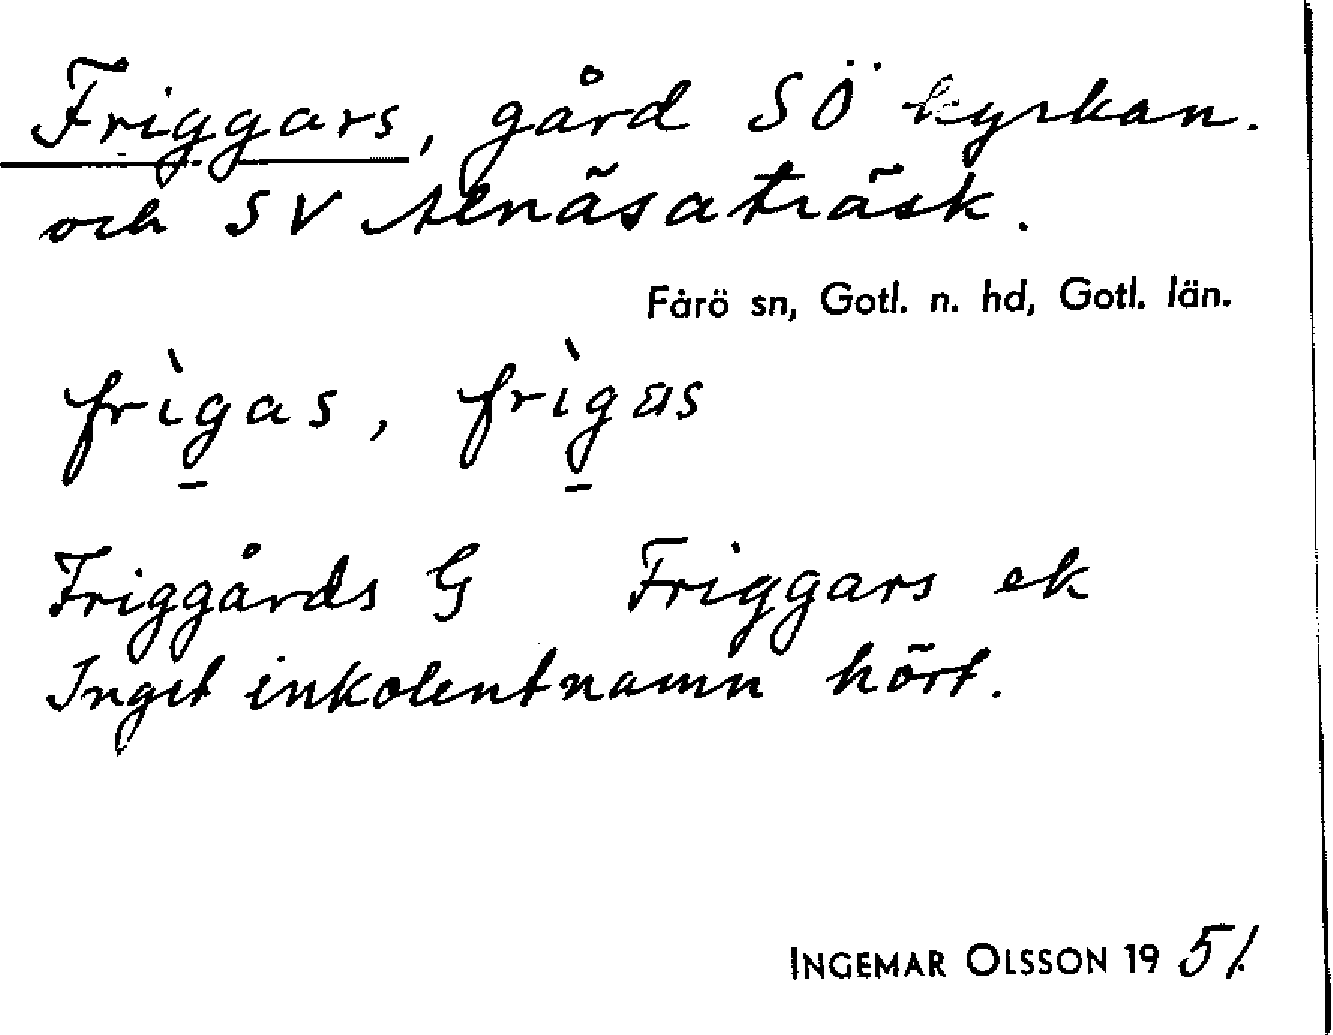 Friggars, gård SÖ kyrkan.
och SV Alnäsaträsk.
Fårö sn, Gotl. n. hd, Gotl. län.
frìg̱as, frìg̱äs
Friggårds G Friggars ek
Inget inkolentnamn hört.
INGEMAR OLSSON 1951.